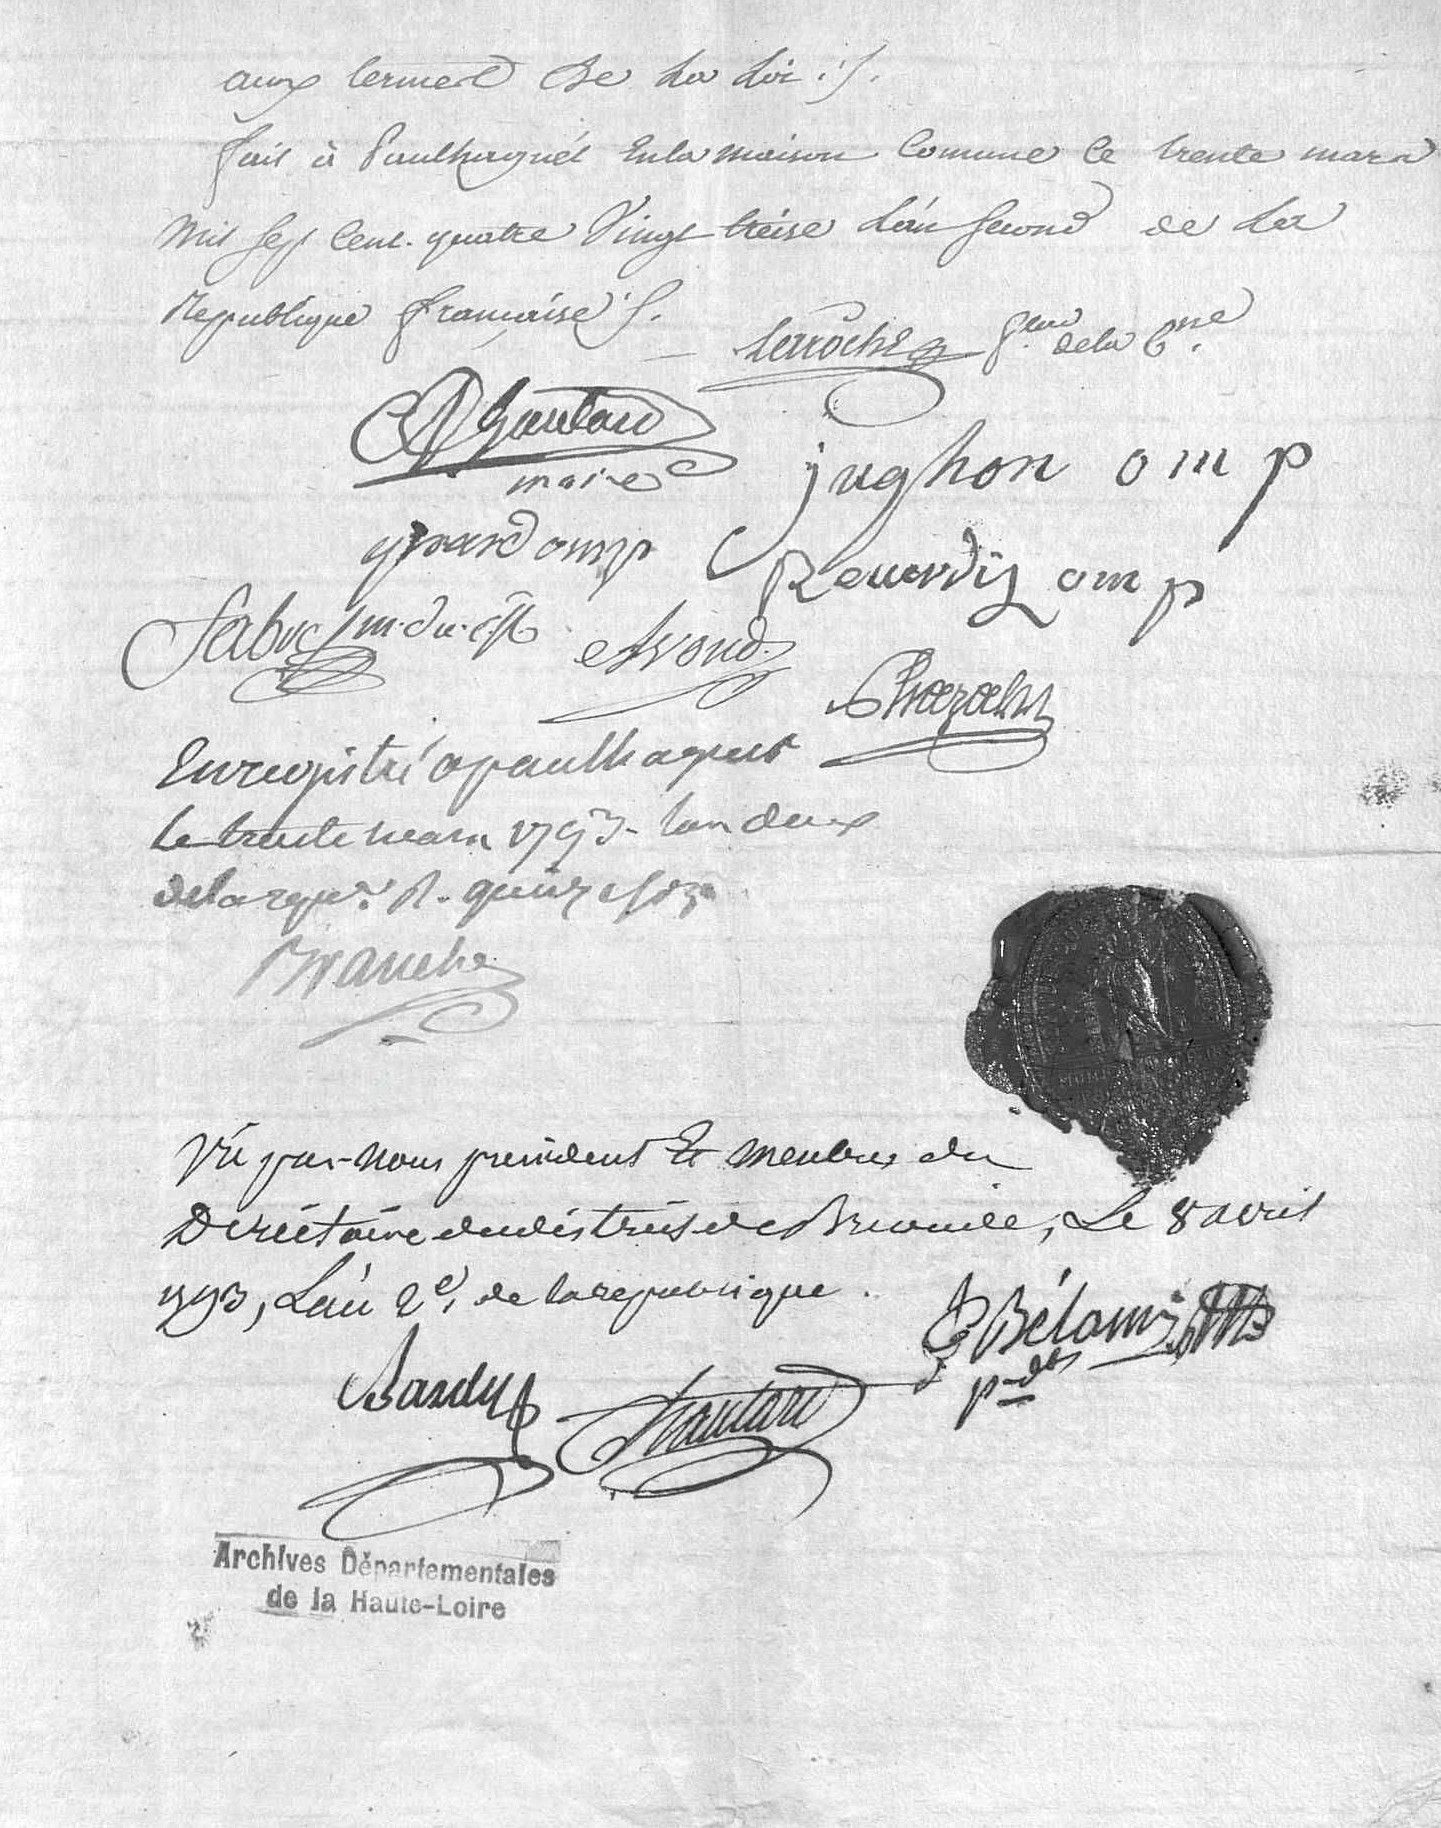 aux termes de La Loi ./.
fait à Paulhaguét En la maison Comune Le trente mars
Mil Sept Cent. quatre Vingt treise L'an Second de La
Republique françaisé ./.
Laroche g. de la C.ne
Gautard
maire
jughon o m p
grand omp
Reverdis om p
Sabuc m. du. c.
Avond
Enregistré a paulhaguet
Le trente mars 1793. lan deux
de la rep. R. quinze sols
Branche
Vû par-nous president Et membres du
Diréctoire du district de Brioude, Le 8 avril
1793, L'an 2e, de la république.
Bélomi
pdt
Bardy
Gautard
Archives Départementales
de la Haute-Loire